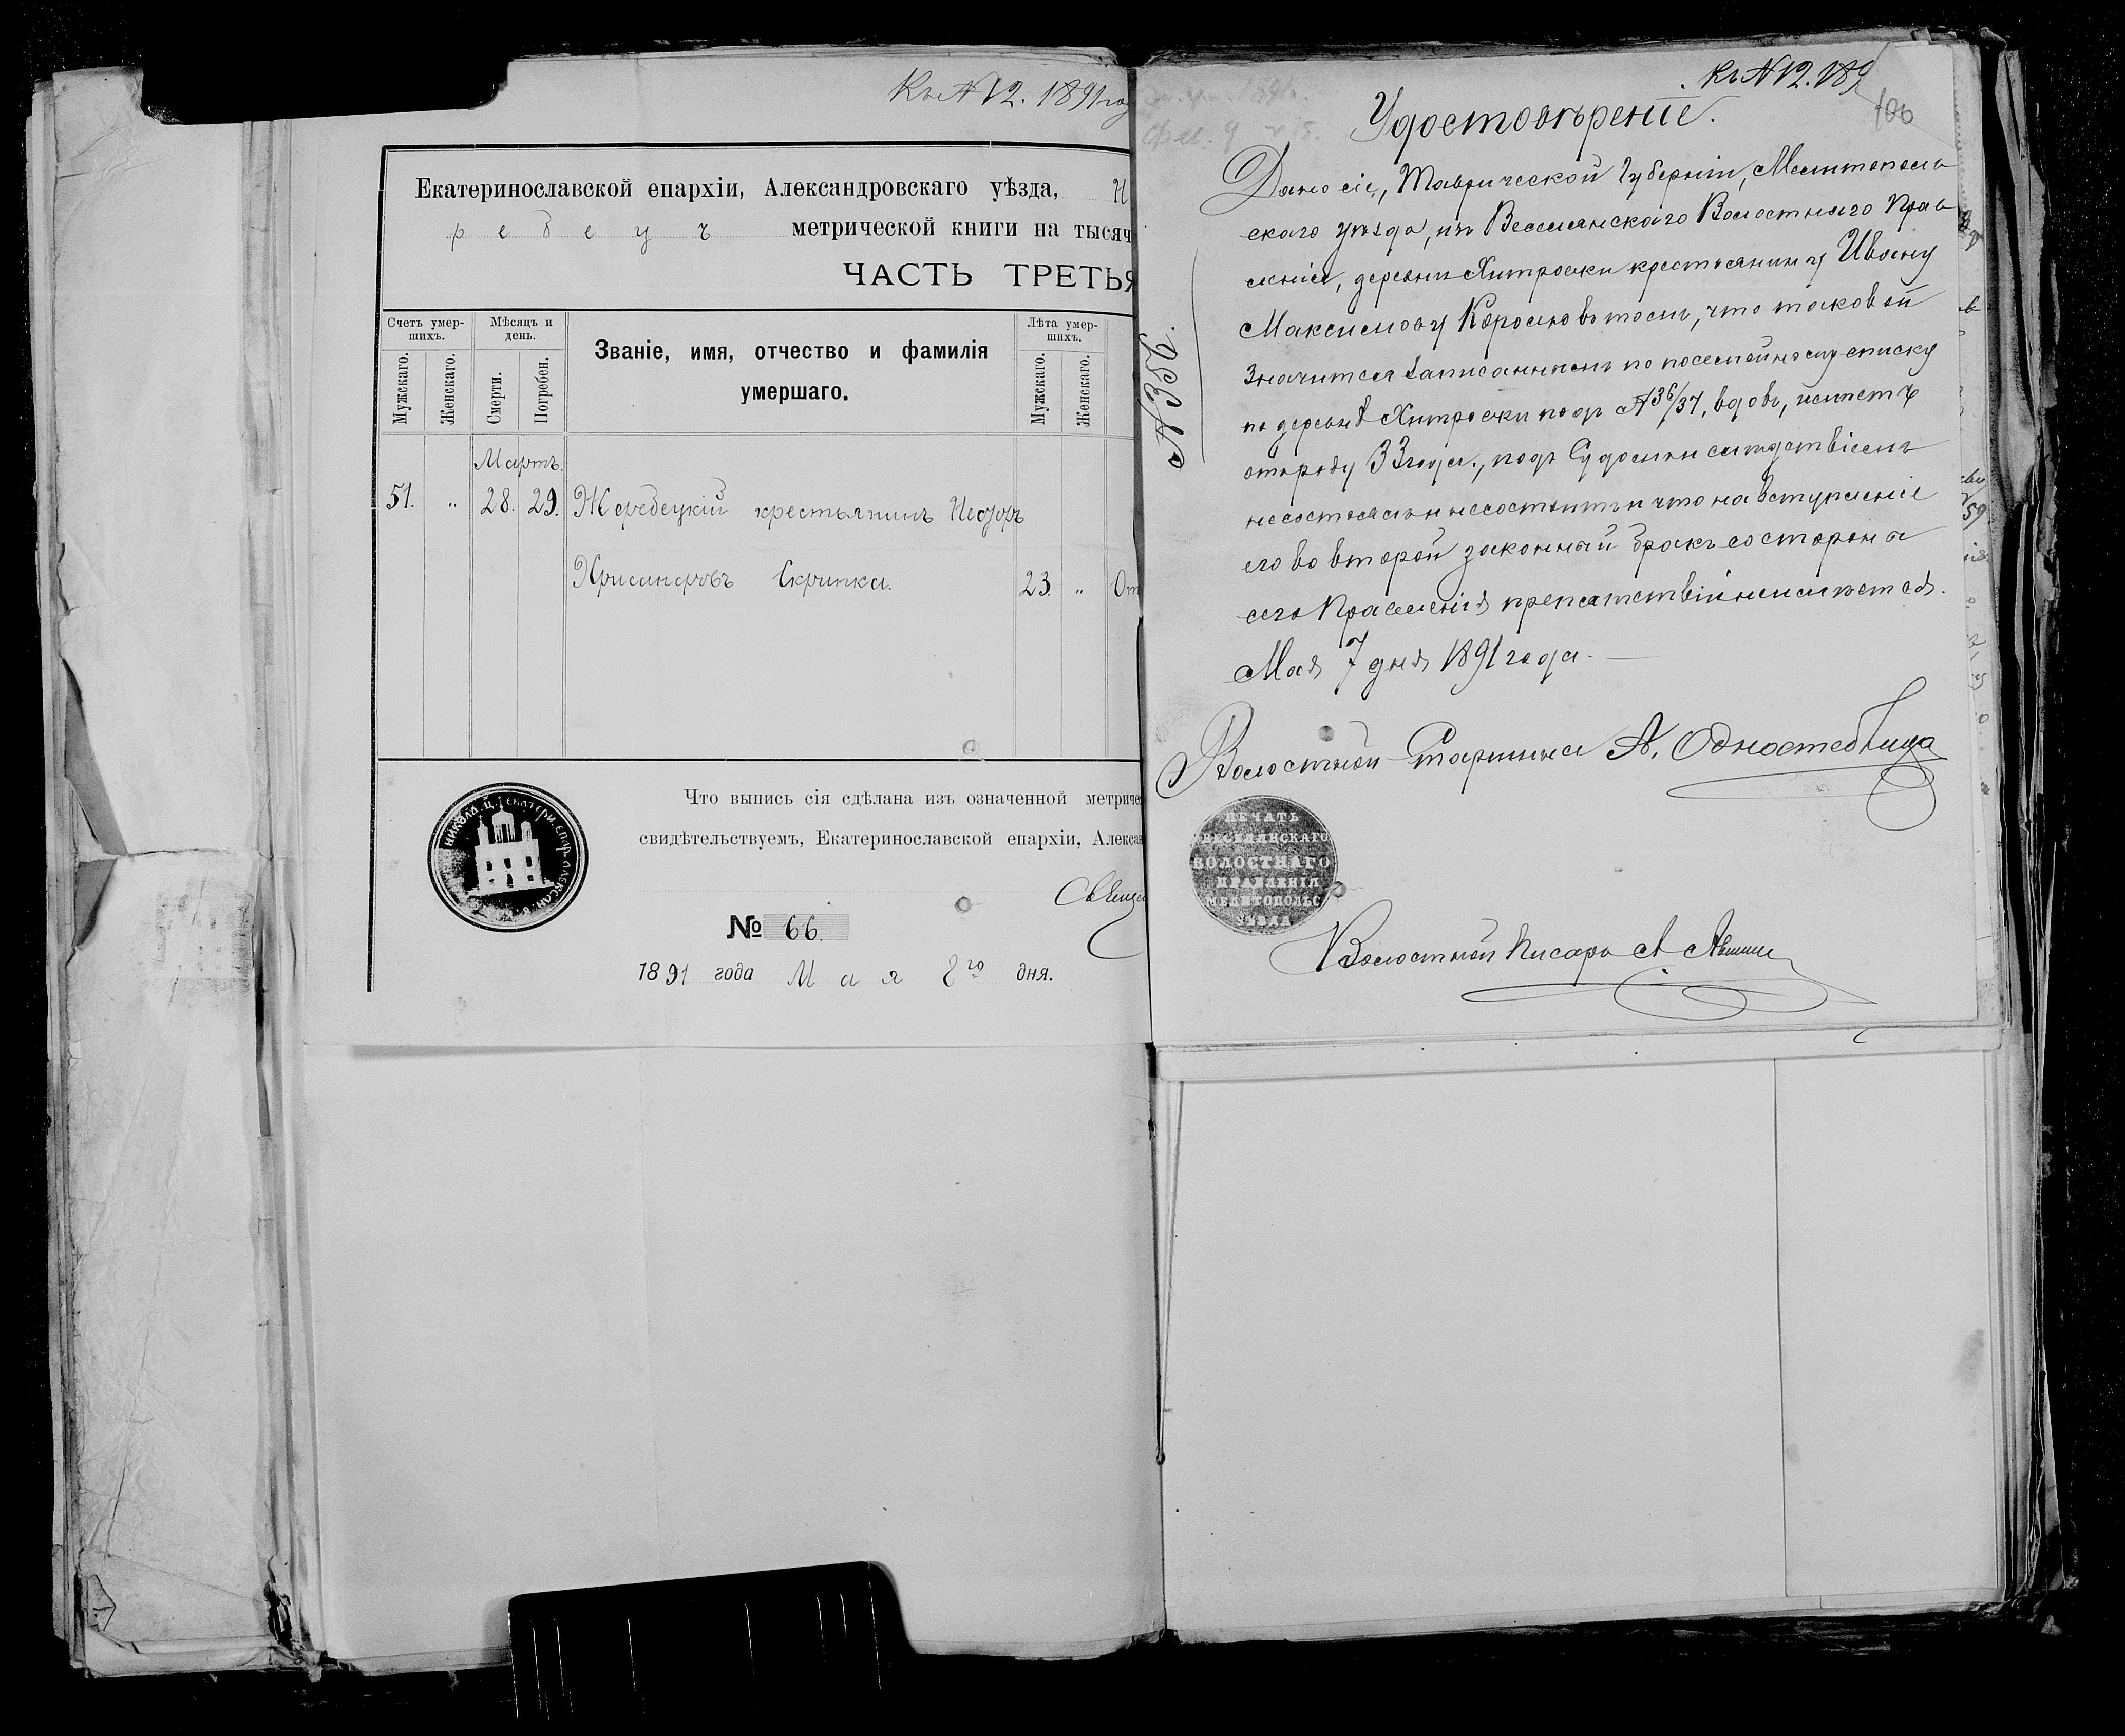 Къ № 12. 1891 го
Екатеринославской епархіи, Александровскаго уѣзда, Н
р е б е ц ъ метрической книги на тысяч
ЧАСТЬ ТРЕТЬЯ
Счетъ умер-
шихъ.
Мѣсяцъ и
день.
Званіе, имя, отчество и фамилія
умершаго.
Лѣта умер-
шихъ.
Мужскаго.
Женскаго.
Смерти.
Погребен.
Мужскаго.
Женскаго.
Мартъ.
51. „ 28. 29. Жеребецкій крестьянинъ Несторъ
Хрисанфовъ Скрипка. 23. „ От
Что выпись сія сдѣлана изъ означенной метриче
свидѣтельствуемъ, Екатеринославской епархіи, Алексан
Свящ
№ 66.
1891 года Мая 8го дня.
Къ № 12. 189
106
Удостовѣреніе.
Дано сіе, Таврической Губерніи, Мелитополь
скаго уѣзда, изъ Веселянскаго Волостнаго Прав
ленія, деревни Хитровки крестьянину Ивану
Максимову въ томъ, что таковой
значится записаннымъ по посемейному списку
по деревнѣ Хитровки подъ № 36/37, вдовъ, имѣетъ
отъ роду 33 года, подъ Судомъ и слѣдствіемъ
не состоялъ и не состоитъ и что на вступленіе
его во второй законный бракъ со стороны
сего Правленія препятствій не имѣется.
Мая 7 дня 1891 года. —
Волостной Старшина А.
ПЕЧАТЬ
ВЕСЕЛЯНСКАГО
ВОЛОСТНАГО
ПРАВЛЕНІЯ
МЕЛИТОПОЛЬС
УѢЗДА
Волостной Писарь А